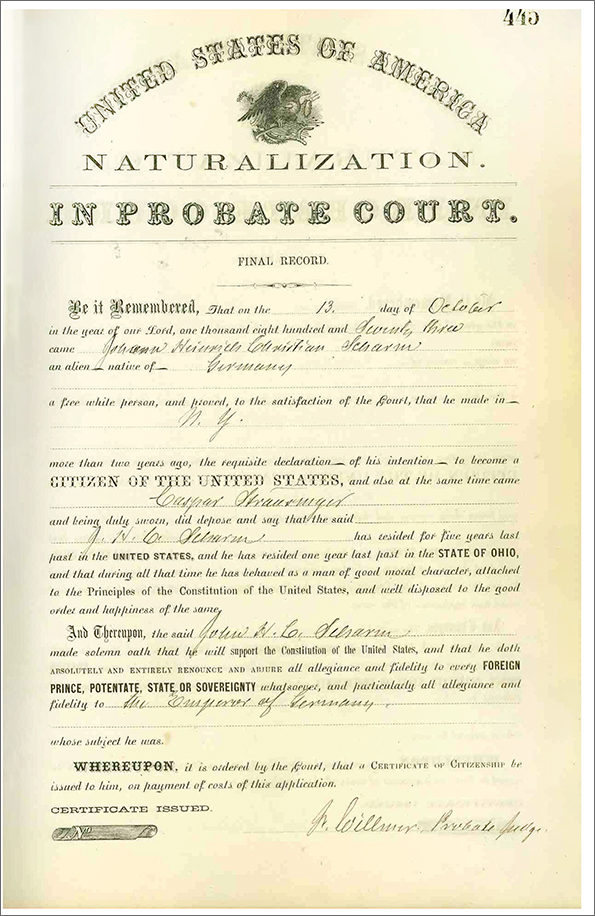 445
UNITED STATES OF AMERICA
NATURALIZATION.
IN PROBATE COURT.
FINAL RECORD.
Be it Remembered, That on the 13. day of October
in the year of our Lord, one thousand eight hundred and Seventy three
came Johann Heinrich Christian Scharm
an alien native of Germany
a free white person, and proved, to the satisfaction of the Court, that he made in
N. Y.
more than two years ago, the requisite declaration of his intention to become a
CITIZEN OF THE UNITED STATES, and also at the same time came
Caspar
and being duly sworn, did depose and say that the said
J. H. C. Scharm has resided for five years last
past in the UNITED STATES, and he has resided one year last past in the STATE OF OHIO,
and that during all that time he has behaved as a man of good moral character, attached
to the Principles of the Constitution of the United States, and well disposed to the good
order and happiness of the same.
And Thereupon, the said John H. C. Scharm
made solemn oath that he will support the Constitution of the United States, and that he doth
ABSOLUTELY AND ENTIRELY RENOUNCE AND ABJURE all allegiance and fidelity to every FOREIGN
PRINCE, POTENTATE, STATE OR SOVEREIGNTY whatsoever, and particularly all allegiance and
fidelity to the Emperor of Germany.
whose subject he was.
WHEREUPON, it is ordered by the Court, that a CERTIFICATE OF CITIZENSHIP be
issued to him, on payment of costs of this application.
CERTIFICATE ISSUED.
No
Willmer, Probate Judge.